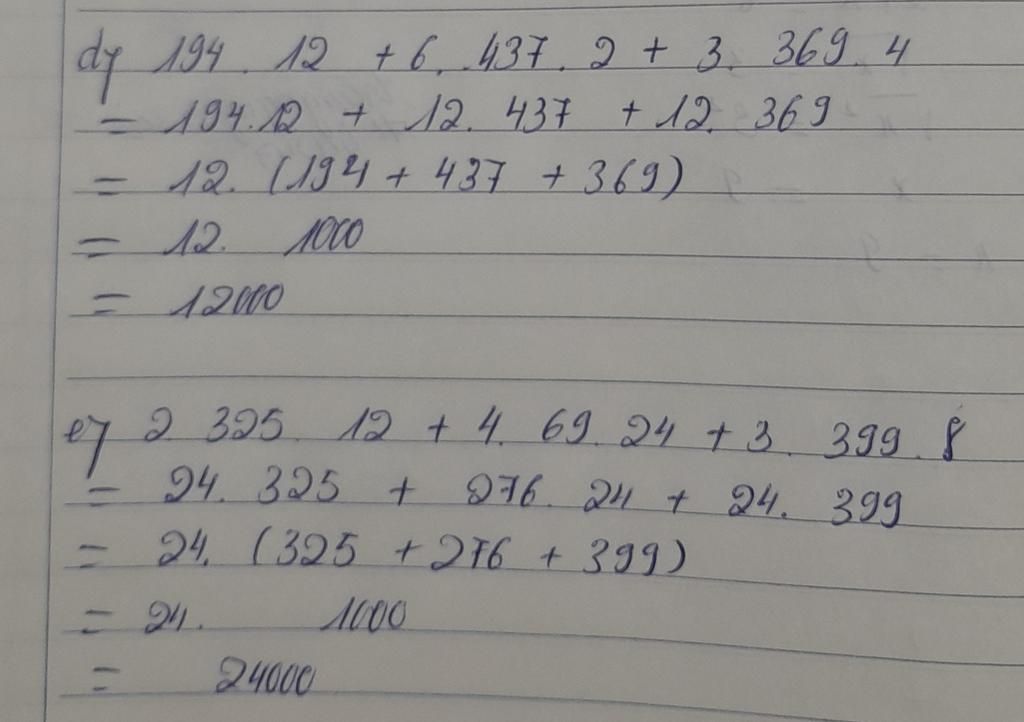 d, 194. 12 + 6. 437. 2 + 3. 369. 4
= 194.12 + 12. 437 + 12. 369
= 12. (194 + 437 + 369)
= 12. 1000
= 12000
e, 2 325. 12 + 4. 69. 24 + 3. 399. 8
= 24. 325 + 276. 24 + 24. 399
= 24. (325 + 276 + 399)
= 24. 1000
= 24000